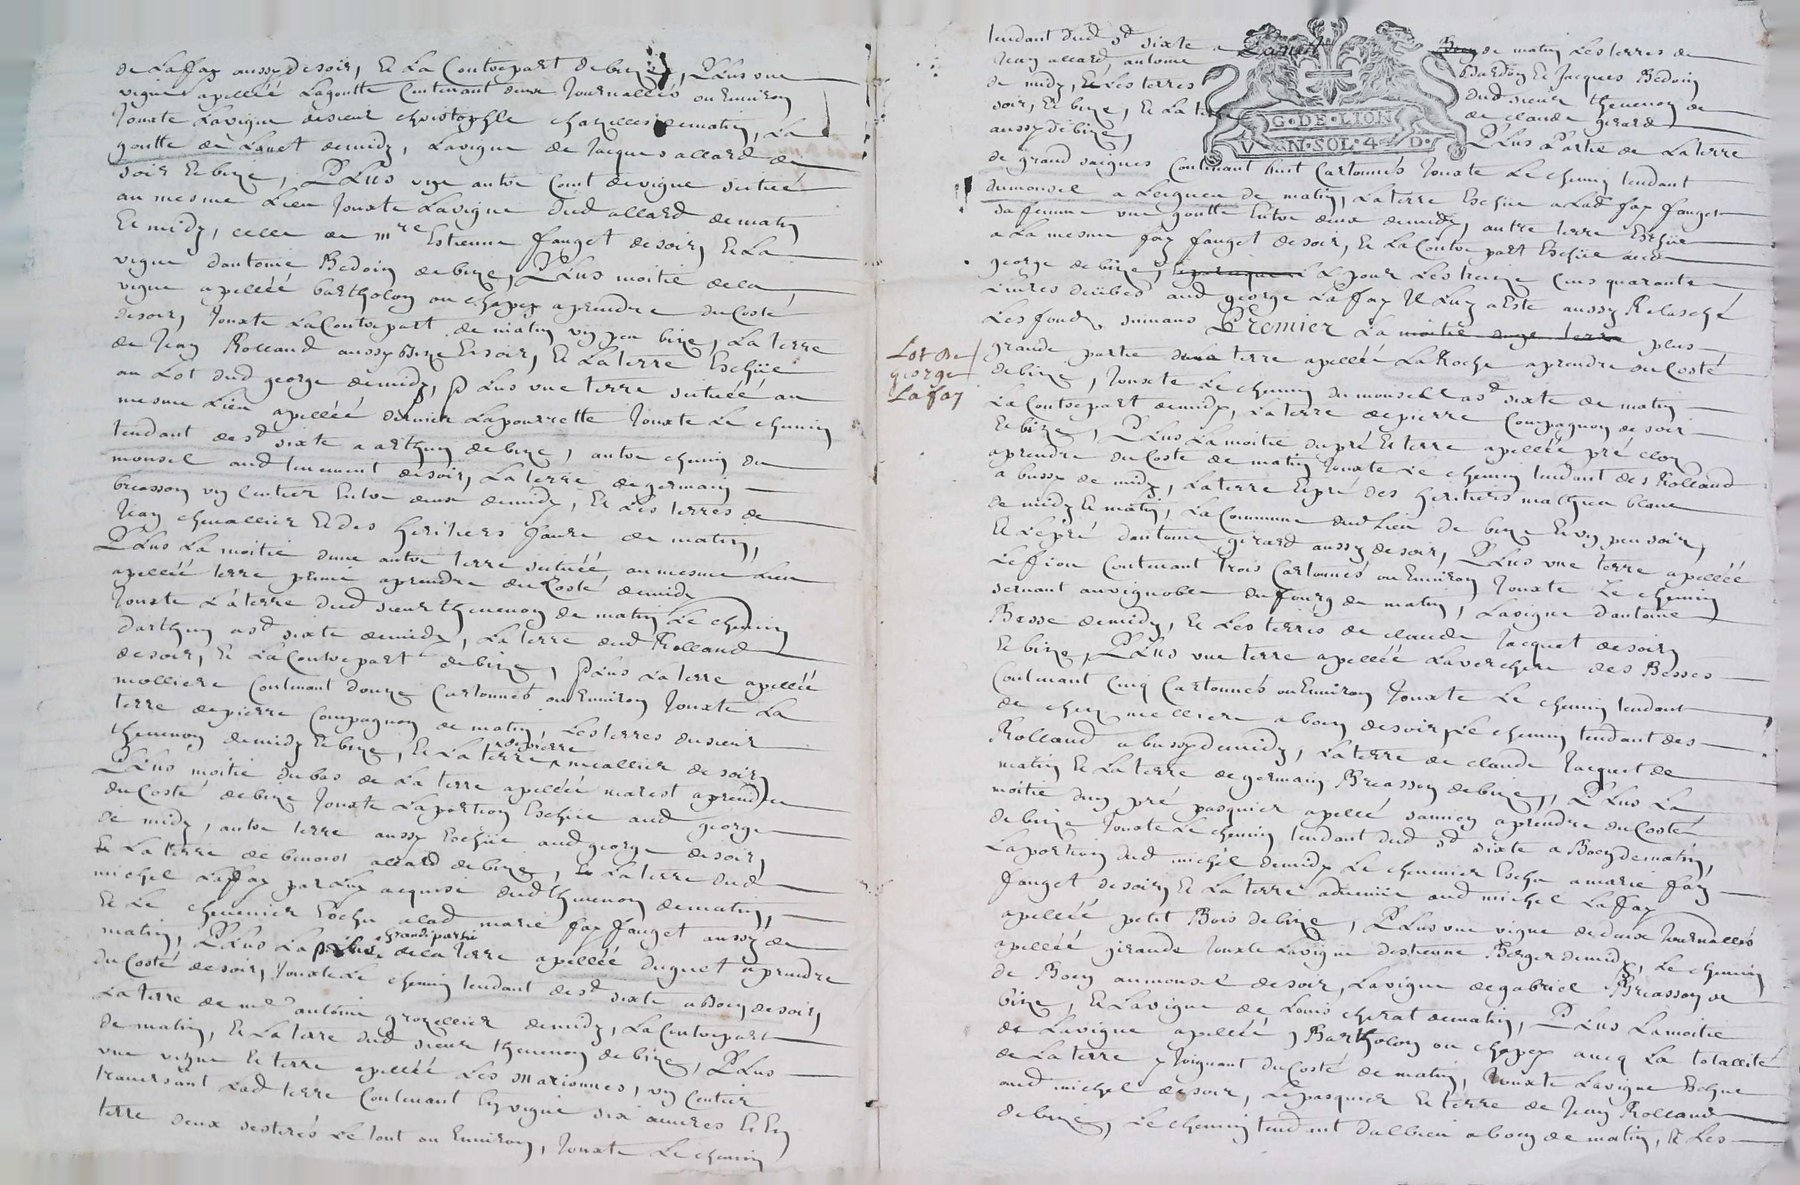 de Laffay aussy de soir, Et La Contrepart de bize, PLus une
vigne apellée Lagoutte Contenant deux Journallés ou Environ
Jouxte Lavigne du sieur christophle chazelles de matin, La
goutte de Lavet demidy, Lavigne de Jacques allard de
soir Et bize, PLus une autre Cont de vigne scituée
au mesme Lieu Jouxte Lavigne dud allard de matin
Et midy, celle de mre Estienne fauget de soir, Et La
vigne dantoine Bedoin de bize, PLus moitié de la
vigne apellée bartholon ou chapez aprendre du Costé
de soir, Jouxte La Contrepart de matin un peu bize, La terre
de Jean Rolland aussy bize Et soir, Et La terre Eschüe
au Lot dud george demidy, PLus une terre scituée au
mesme Lieu apellée dernier Lapourrette Jouxte Le chemin
tendant de st sixte a arthun de bize, autre chemin du
monsel aud tenement de soir, La terre de germain
breasson un sentier Entre deux demidy, Et Les terres de
Jean chevallier Et des heritiers faure de matin,
PLus La moitié dune autre terre scituée au mesme Lieu
apellée terre prime aprendre du Costé demidy
Jouxte La terre dud sieur thevenon de matin Le chemin
darthun a st sixte demidy, La terre dud Rolland
de soir, Et La Contrepart de bize, PLus La terre apellée
molliere Contenant douze Cartonnés ou Environ Jouxte La
terre de pierre Compagnon de matin, Les terres du sieur
thevenon demidy Et bize, Et La terre de pierre meallier de soir
PLus moitié du bas de La terre apellée marest aprendre
du Costé de bize Jouxte Laportion Eschüe aud george
de midy, autre terre aussy Eschüe aud george de soir,
Et La terre de benoist allard de bize, Et La terre dud
michel Laffay par Luy acquise dud thevenon de matin,
Et Le chenevier Eschu alad marie fay fauget aussy de
matin, PLus La plus grande partie de la terre apellée duguet aprendre
du Costé de soir, Jouxte Le chemin tendant de st sixte a Boen de soir,
La terre de me antoine grozellier demidy, La Contrepart
de matin, Et La terre dud sieur thevenon de bize, PLus
une vigne Et terre apellée Les marionnes, un sentier
traversant Lad terre Contenant En vigne six œuvres Et En
terre deux sestirés Le tout ou Environ, Jouxte Le chemin
tendant dud st sixte a
Jean allard, antoine
de midy, Et Les terres
soir, Et bize, Et La terre
aussy de bize,
G·DE·LION
VN·SOL·4·D·
de matin Les terres de
Bardon Et Jacques Bedoin
dud sieur thevenon de
de claude girard
PLus Partie de La terre
de grand saignes Contenant huit Cartonnés Jouxte Le chemin tendant
du monsel a Leigneu de matin, La terre Eschüe a Lad fay fauget
sa femme une goutte Entre deux demidy, autre terre Eschüe
a La mesme fay fauget de soir, Et La Contrepart Eschüe aud
george de bize, Et pour Les treize Cens quarante
Livres deübes aud george Laffay Il Luy a Esté aussy Relasché
Les fonds suivans Premier La moitié dune terre plus
grande partie terre apellée La Roche aprendre du Costé
Lot de
george
Lafay
de bize, Jouxte Le chemin du monsel a st sixte de matin
La Contrepart demidy, La terre de pierre Compagnon de soir
Et bize, PLus La moitié du pré Et terre apellée pré clos
aprendre du Costé de matin Jouxte Le chemin tendant des Rolland
a bussy de midy, La terre Et pré des heritiers mathieu blanc
de midy Et matin, La Commune dud Lieu de bize Et un peu soir,
Et Le pré dantoine girard aussy de soir, PLus une terre apellée
Le fion Contenant trois Cartonnés ou Environ Jouxte Le chemin
servant au vignoble du fourg de matin, Lavigne dantoine
Besse demidy, Et Les terres de claude Jacquet de soir
Et bize, PLus une terre apellée Laverchere des Besses
Contenant Cinq Cartonnés ou Environ Jouxte Le chemin tendant
de chez melliere a boen de soir, Le chemin tendant des
Rolland a bussy demidy, La terre de claude Jacquet de
matin Et La terre de germain Breasson de bize, PLus La
moitié dun pré pasquier apellé sannoy aprendre du Costé
de bize Jouxte Le chemin tendant dud st sixte a Boen de matin,
Laportion dud michel demidy Le chenevier Eschu a marie fay
fauget de soir, Et La terre advenüe aud michel Laffay
apellée petit Bois de bize, PLus une vigne de deux Journallés
apellée giraude Jouxte Lavigne destienne Berger demidy, Le chemin
de Boen au monsel de soir, Lavigne de gabriel Breasson de
bize, Et Lavigne de Louis cherat de matin, PLus La moitié
de Lavigne apellée Bartholon ou chapez avecq La totallité
de La terre y Joignant du Costé de matin, Jouxte Lavigne Eschüe
aud michel de soir, Le pasquier Et terre de Jean Rolland
de bize, Le chemin tendant dalbieu a boen de matin, Et Les